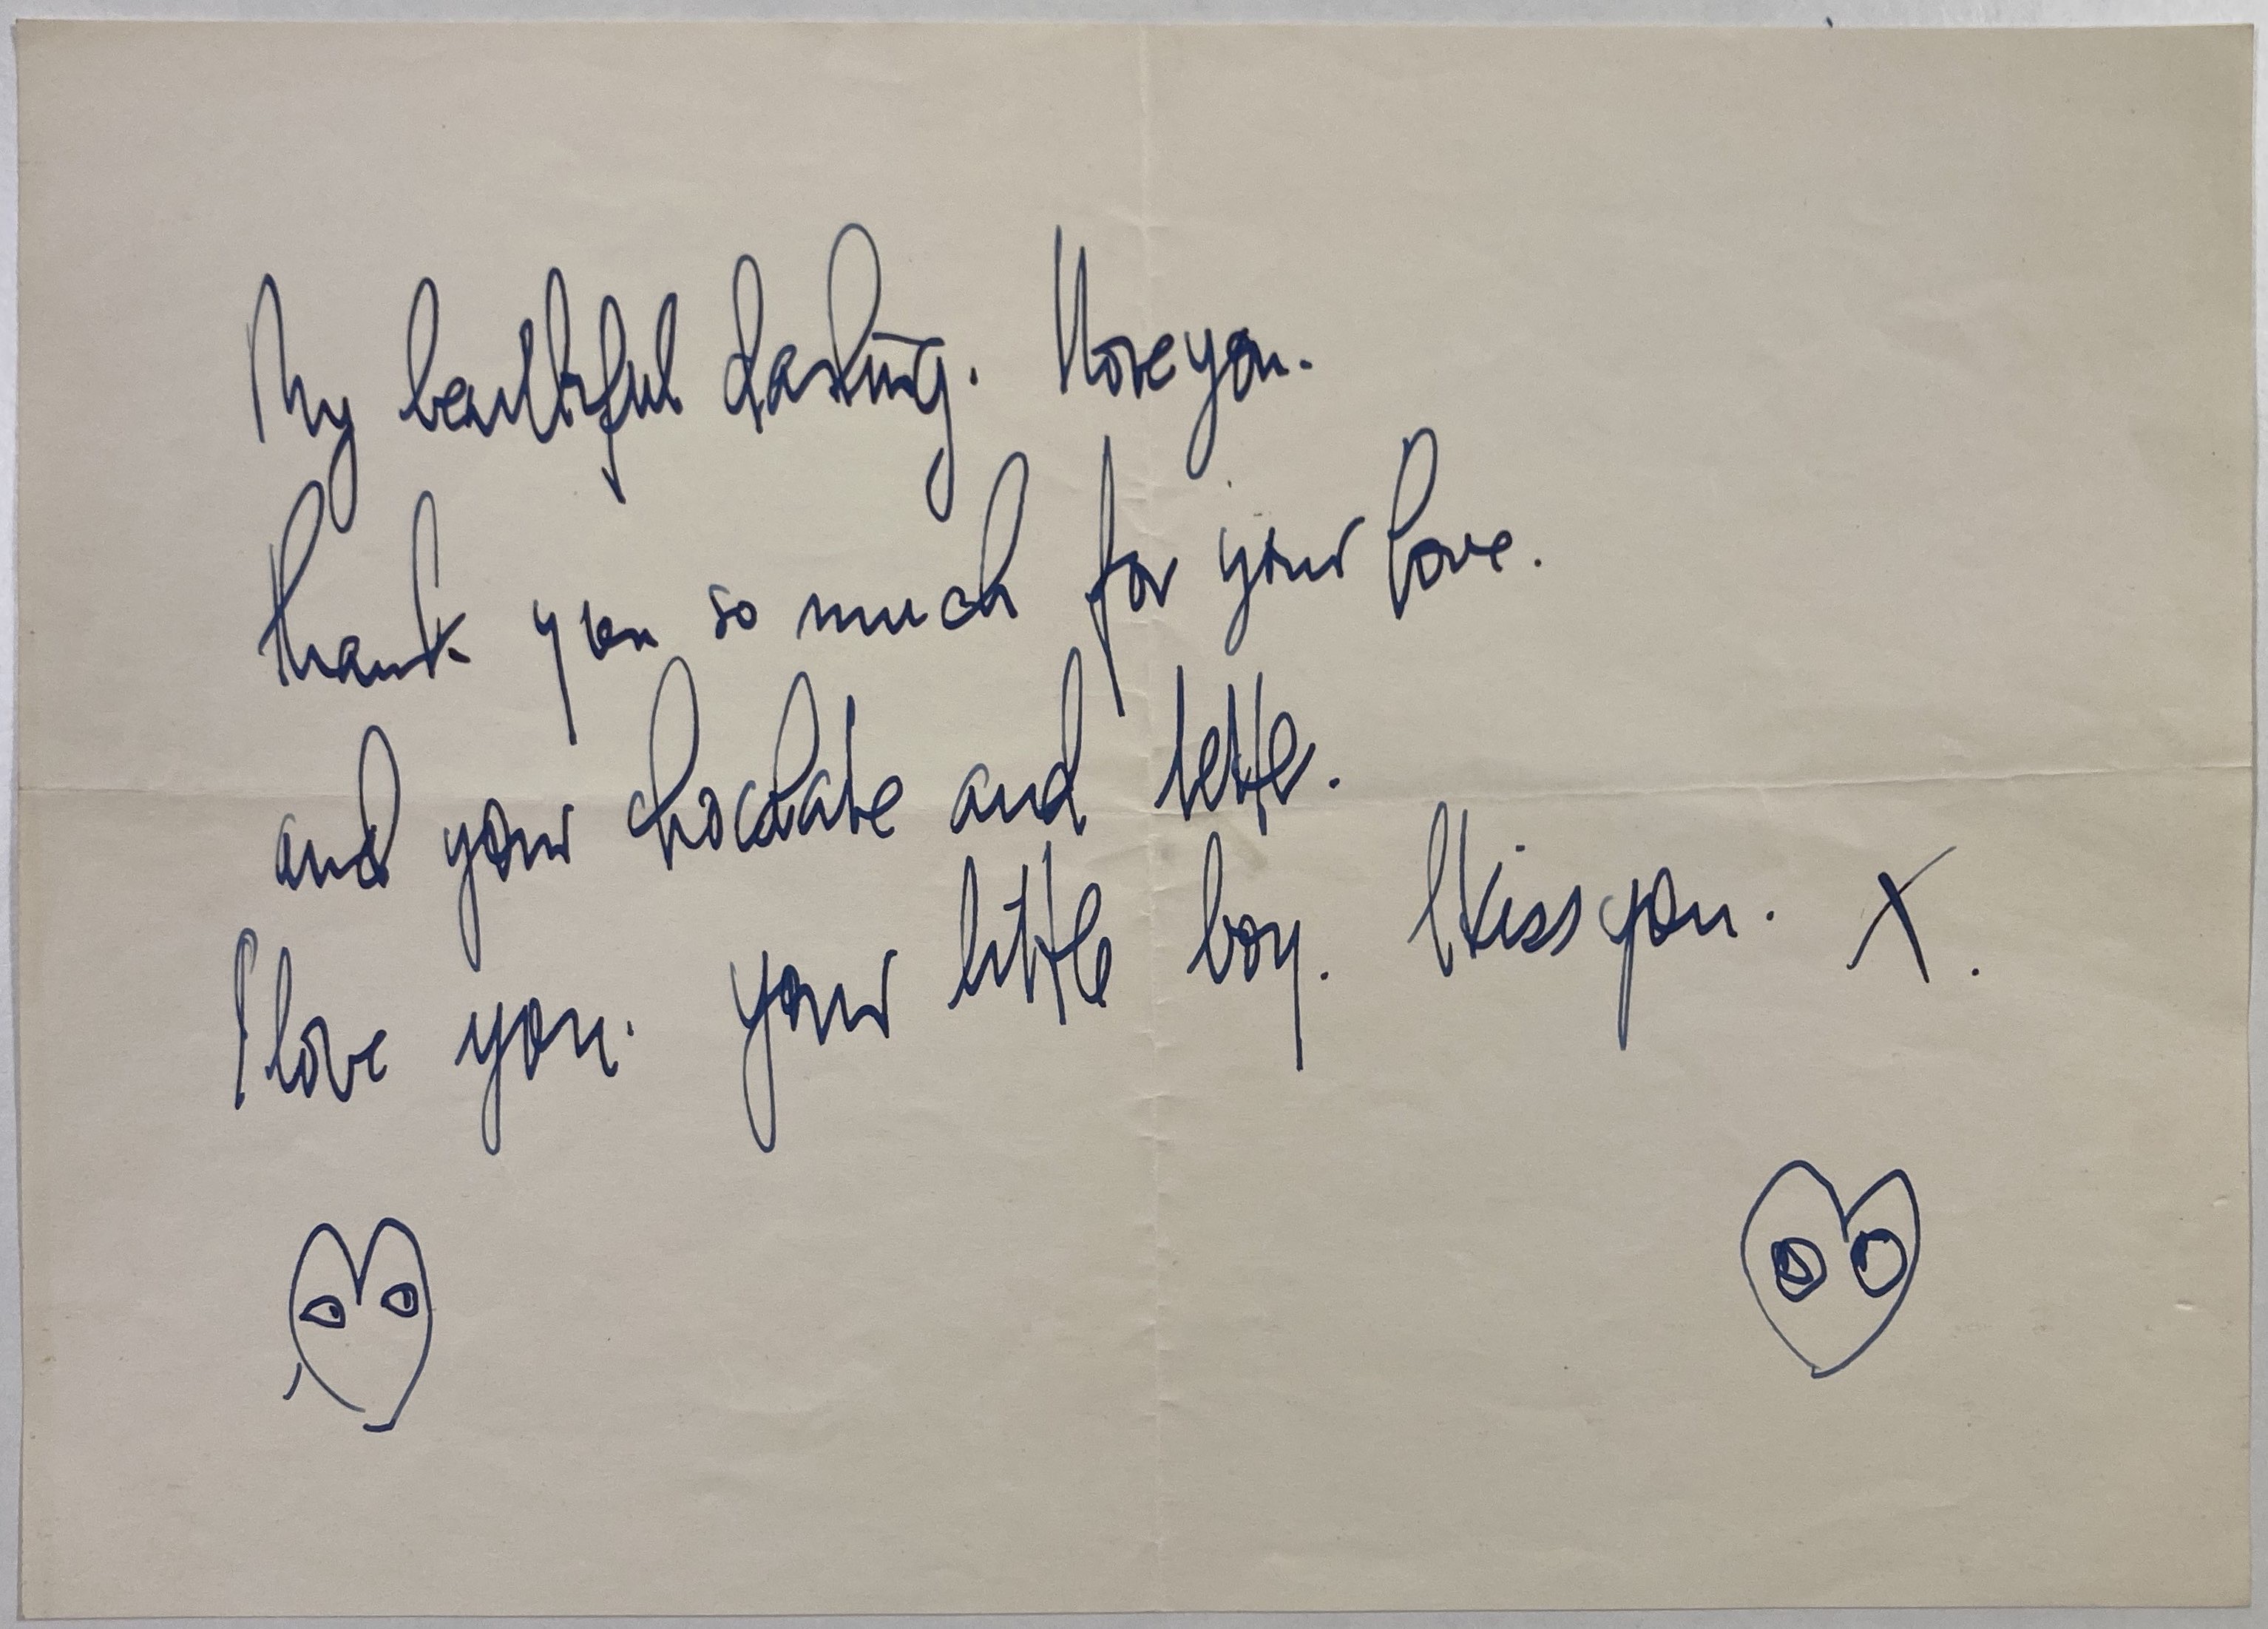 My beautiful darling. I love you.
thank you so much for your love.
and your chocolate and letter.
I love you. your little boy. I kiss you. X.